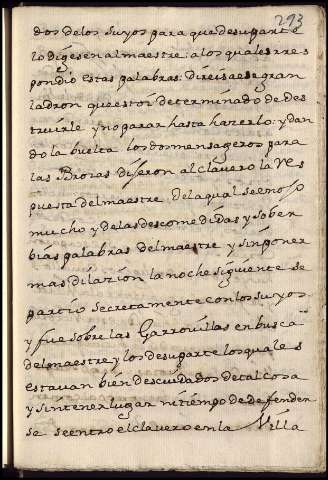 293
dos delos suyos para que desuparte
lo digesen al maestre: a los quales rres
pondio estas palabras: direis a ese gran
ladron que estoi determinado de des
truirle y no parar hasta hazerlo: y dan
do la buelta los dos mensageros para
las Brozas dijeron al clavero la rres
puesta del maestre. Dela qual se enojo
mucho y delas descomedidas y sober
bias palabras del maestre y sin poner
mas dilazion la noche siguiente se
partio secretamente con los suyos
y fue sobre las Garrovillas en busca
del maestre y los desuparte los quales
estavan bien descuidados de tal cosa
y sin tener lugar ni tiempo de defender
se se entro el clavero en la Villa